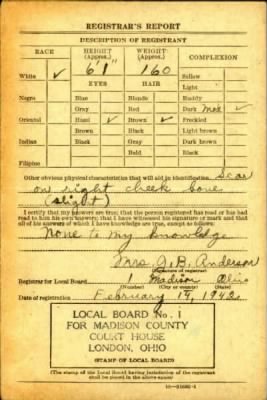 REGISTRAR'S REPORT
DESCRIPTION OF REGISTRANT
RACE HEIGHT (Approx.) WEIGHT (Approx.) COMPLEXION
White ✓ 6'1" 160 Sallow
EYES HAIR Light
Negro Blue Blonde Ruddy
Gray Red Dark Med ✓
Oriental Hazel ✓ Brown ✓ Freckled
Brown Black Light brown
Indian Black Gray Dark brown
Bald Black
Filipino
Other obvious physical characteristics that will aid in identification Scar
on right cheek bone
(slight)
I certify that my answers are true; that the person registered has read or has had
read to him his own answers; that I have witnessed his signature or mark and that
all of his answers of which I have knowledge are true, except as follows:
None to my knowledge
Mrs. J. B. Anderson
(Signature of registrar)
Registrar for Local Board 1 Madison Ohio
(Number) (City or county) (State)
Date of registration February 14, 1942
LOCAL BOARD No. 1
FOR MADISON COUNTY
COURT HOUSE
LONDON, OHIO
(STAMP OF LOCAL BOARD)
(The stamp of the Local Board having jurisdiction of the registrant
shall be placed in the above space.)